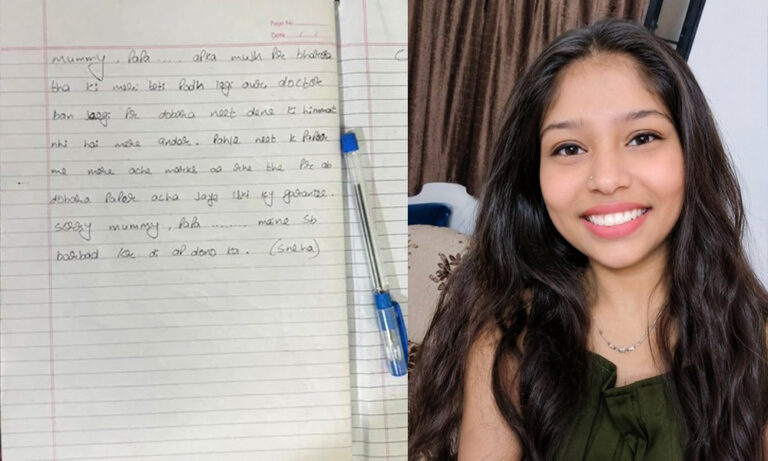 Page No.
Date / /
mummy, Papa ..... apka mujh Pe bharosa
tha ki meri beti Padh legi aur doctor
ban jaegi Pr dobara neet dene ki himmat
nhi hai mere andar. Pahle neet k Paper
me mere ache marks aa rhe the Pr ab
dobara Paper acha jaye iski ky garantee.
sorry mummy, Papa ......... maine sb
barbad kr di ap dono ka. (Sneha)